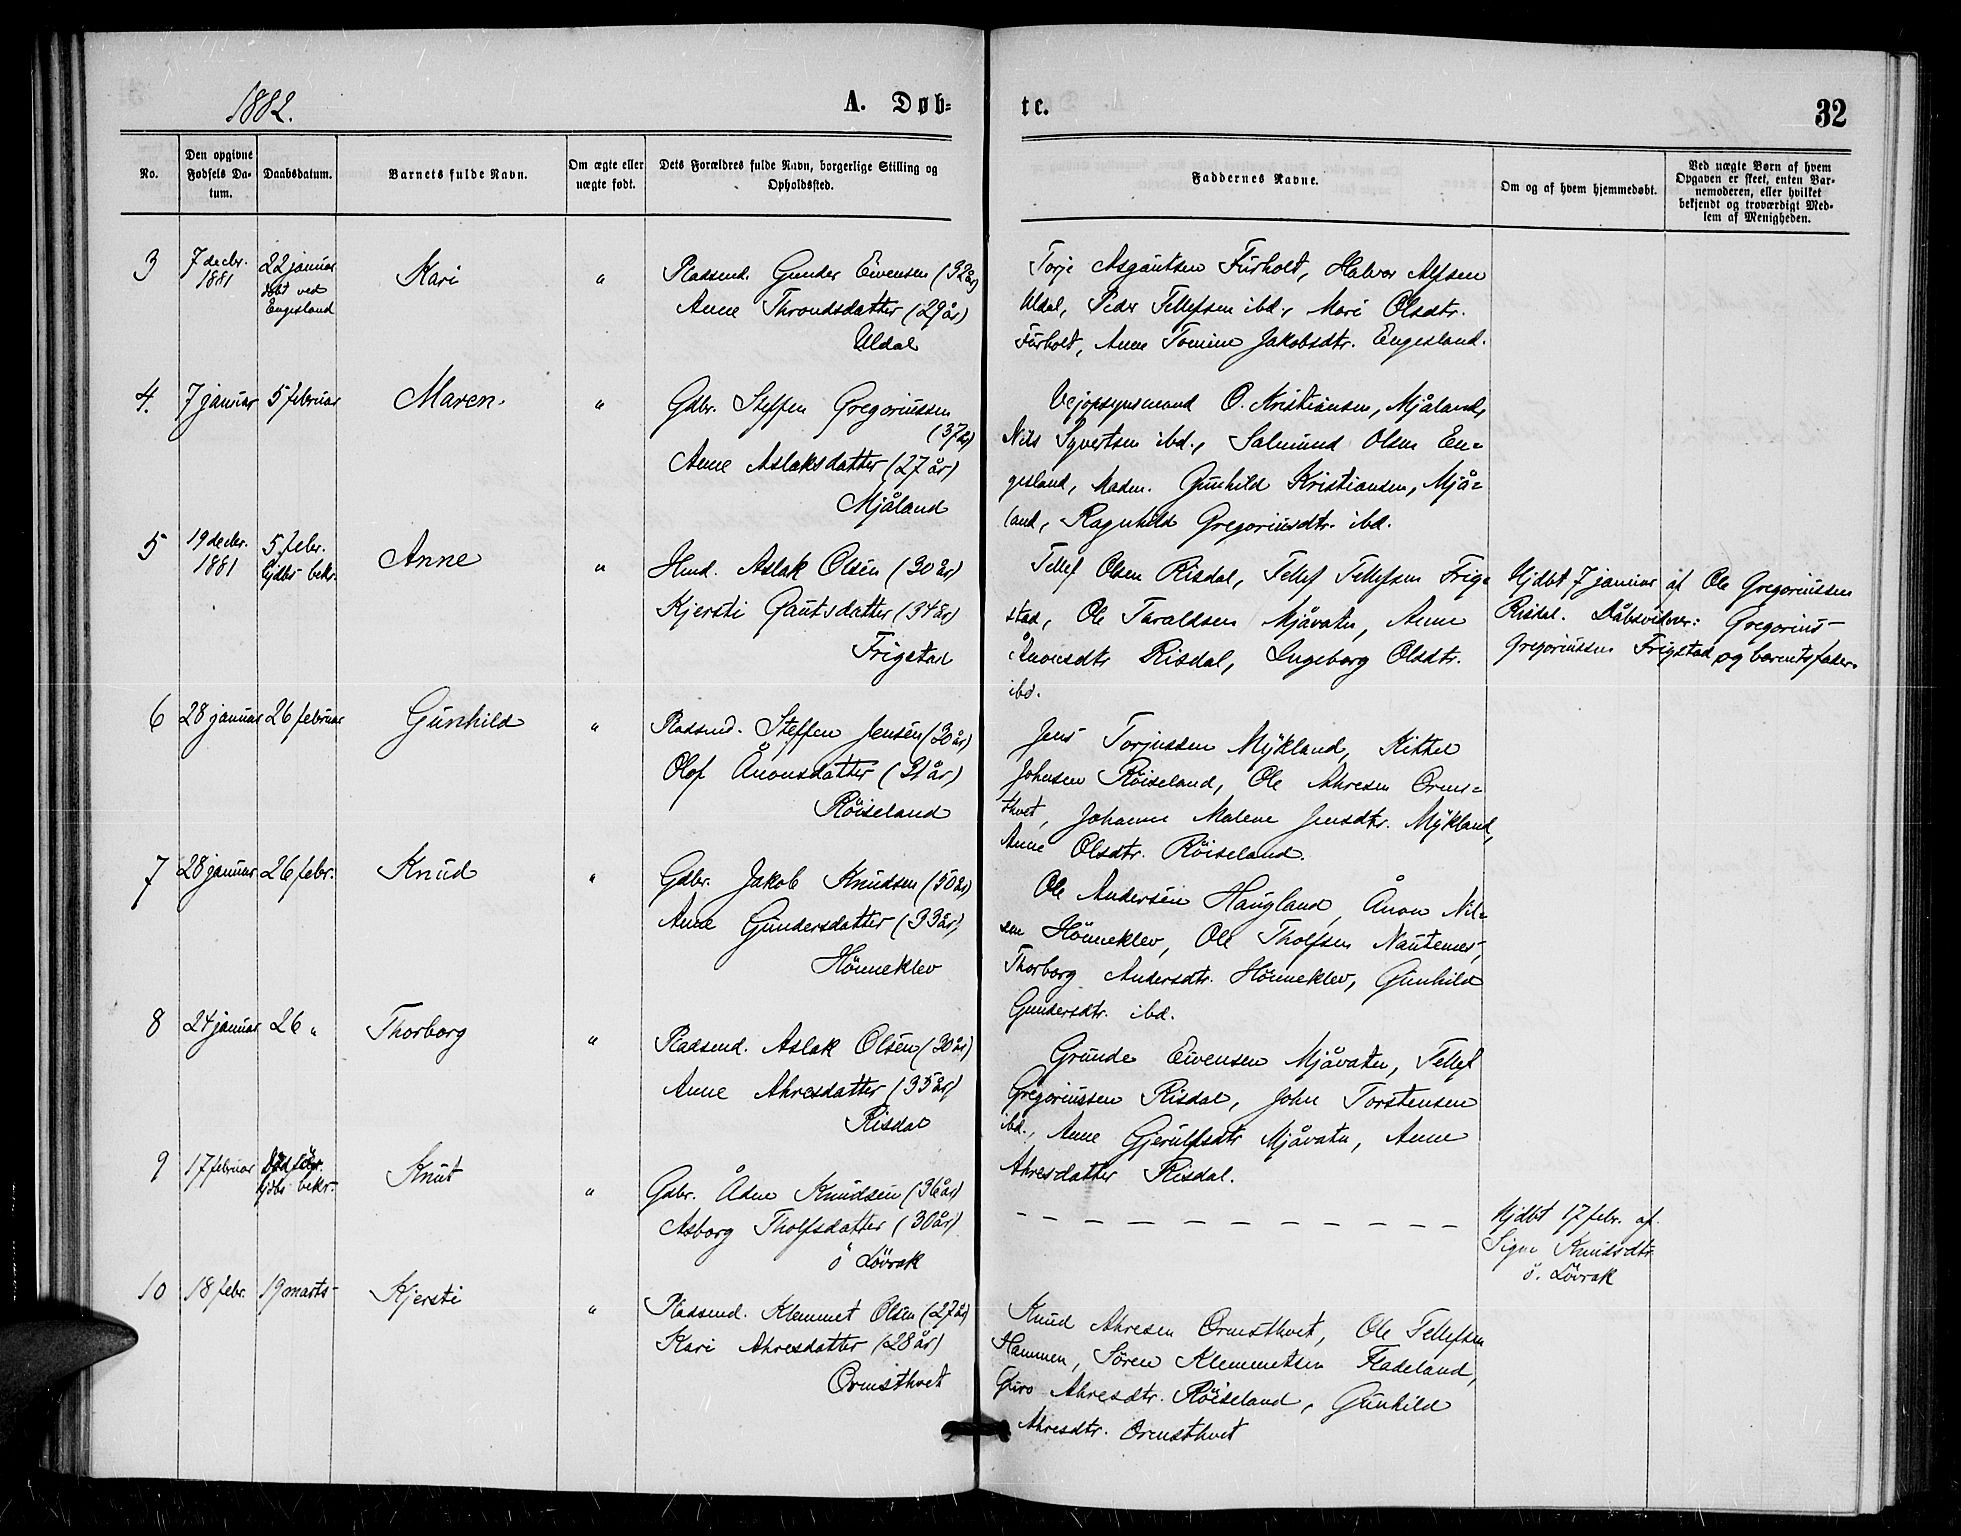 1882.
A. Døb=
te.
32
No.
Den opgivne Fødsels Da-tum.
Daabsdatum.
Barnets fulde Navn.
Om ægte eller uægte født.
Dets Forældres fulde Navn, borgerlige Stilling og Opholdssted.
Faddernes Navne.
Om og af hvem hjemmedøbt.
Ved uægte Børn af hvem Opgaven er skeet, enten Bar-nemoderen, eller hvilket bekjendt og troværdigt Med-lem af Menigheden.
3
7 decbr.
1881
22 januar
døbt ved
Engesland
Kari
"
Pladsmd. Gunder Eivensen (32 år)
Anne Throndsdatter (29 år)
Uldal
Torje Asgautsen Furholt, Halvor Alfsen
Uldal, Peder Tellefsen ibd., Mari Olsdtr.
Furholt, Anne Tomine Jakobsdtr. Engesland.
4.
7 januar
5 februar
Maren.
"
Gdbr. Steffen Gregoriussen
(37 år)
Anne Aslaksdatter (27 år)
Mjåland
Vejopsynsmand O. Kristiansen, Mjåland,
Nils Syvertsen ibd., Salmund Olsen En=
gesland, Madm. Gunhild Kristiansen, Mjå=
land, Ragnhild Gregoriusdtr. ibd.
5
19 decbr.
1881
5 febr.
hjdbs bekr.
Anne
"
Hmd. Aslak Olsen (30 år)
Kjersti Gautsdatter (34 år)
Frigstad
Tellef Olsen Risdal, Tellef Tellefsen Frig=
stad, Ole Taraldsen Mjåvatn, Anne
Ånonsdtr Risdal, Ingeborg Olsdtr.
ibd.
Hjdbt 7 januar af Ole Gregoriussen
Risdal. Dåbsvidner: Gregorius
Gregoriussen Frigstad og barnets fader.
6
28 januar
26 februar
Gunhild
"
Pladsmd. Steffen Jensen (30 år)
Olof Ånonsdatter (31 år)
Röiseland
Jens Torjussen Mykland, Kittel
Johnsen Röiseland, Ole Ahresen Orms=
thvet, Johanne Malene Jensdtr. Mykland,
Anne Olsdtr. Röiseland.
7
28 januar
26 febr.
Knud
"
Gdbr. Jakob Knudsen (50 år)
Anne Gundersdatter (33 år)
Hönneklev
Ole Andersen Haugland, Ånon Nil=
sen Hönneklev, Ole Tholfsen Nautenes,
Thorborg Andersdtr. Hönneklev, Gunhild
Gundersdtr. ibd.
8
24 januar
26 "
Thorborg
"
Pladsmd. Aslak Olsen (30 år)
Anne Ahresdatter (35 år)
Risdal
Grunde Eivensen Mjåvatn, Tellef
Gregoriussen Risdal, John Torstensen
ibd., Anne Gjerulfsdtr Mjåvatn, Anne
Ahresdatter Risdal.
9
17 februar
Död för
hjdbs bekr.
Knut
"
Gdbr. Ådne Knudsen (36 år)
Asborg Tholfsdatter (30 år)
ö Lövrak
Hjdbt 17 febr. af
Signe Knudsdtr.
ö. Lövrak
10
18 febr.
19 marts
Kjersti
"
Pladsmd. Klemmet Olsen (27 år)
Kari Ahresdatter (28 år)
Ormsthvet
Knud Ahresen Ormsthvet, Ole Tellefsen
Hammen, Sören Klemmetsen Fladeland,
Guro Ahresdtr. Röiseland, Gunhild
Ahresdtr. Ormsthvet